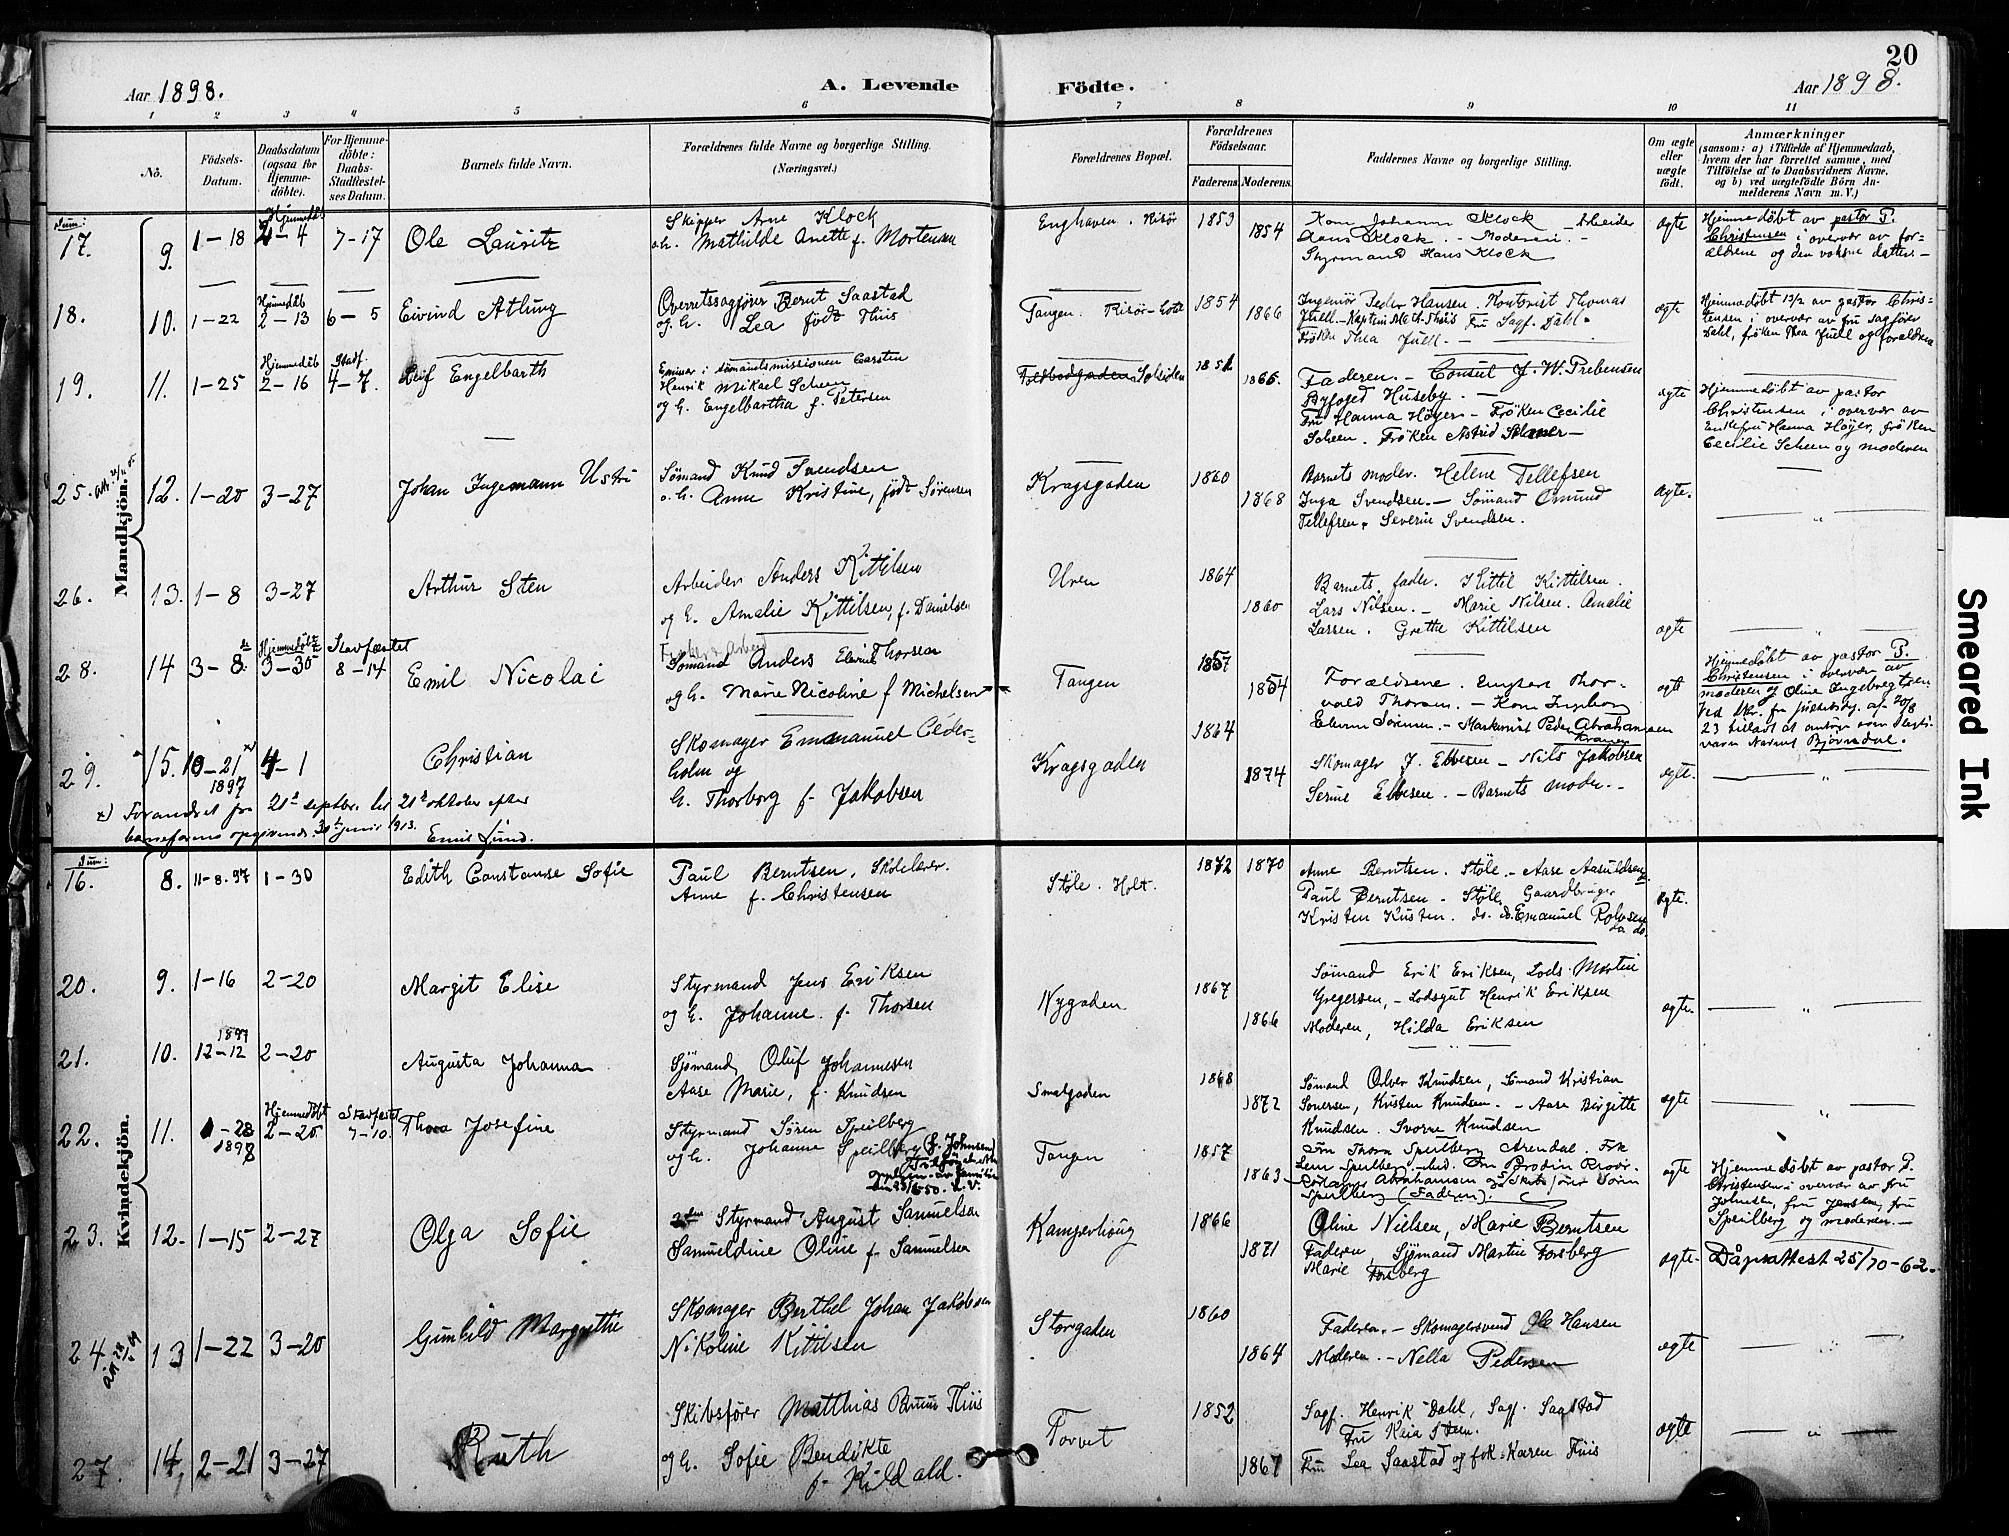 20
Aar 1898.
A. Levende
Födte.
Aar 1898.
1 2 3 4 5 6 7 8 9 10 11
No.
Födsels-
Datum.
Daabsdatum
(ogsaa for
Hjemme-
döbte).
For Hjemme-
döbte:
Daabs-
Stadfæstel-
ses Datum.
Barnets fulde Navn.
Forældrenes fulde Navne og borgerlige Stilling.
(Næringsvei.)
Forældrenes Bopæl.
Forældrenes
Födselsaar.
Faderens Moderens
Faddernes Navne og borgerlige Stilling.
Om ægte
eller
uægte
födt.
Anmærkninger
(saasom: a) i Tilfælde af Hjemmedaab,
hvem der har forrettet samme, med
Tilföielse af to Daabsvidners Navne,
og b) ved uægtefödte Börn An-
melderens Navn m. V.)
Mandkjön.
Sum:
17. 9. 1-18 Hjemmedøbt 2-4 7-17 Ole Lauritz
Skipper Arne Klock
o.h. Mathilde Anette f. Mortensen
Enghaven. Risør 1853 1854
Kone Johanne Klock - Arbeider
Hans Klock. - Moderen. -
Styrmand Hans Klock
ægte
Hjemmedøbt av pastor P.
Christensen i overvær av for-
ældrene og den voksne datter. -
18. 10. 1-22 Hjemmedøb 2-13 6-5 Eivind Atlung
Overretssagfører Bernt Saastad
og h. Lea født Thiis
Tangen. Risør 1854 1866
Peder Hansen. Kontorist Thomas
Juell. - Fru Sagf. Dahl.
Frøken Thea Juell. -
ægte
Hjemmedøbt 13/2 av pastor Chris-
tensen i overvær av fru sagfører
Dahl, frøken Thea Juell og forældrene
19. 11. 1-25 Hjemmedøb 2-16 Stadf. 4-7. Leif Engelbarth
Emissær i sømandsmissionen Carsten
Henrik Mikael Scheen
og h. Engelbartha f. Petersen
Toldbodgaden Solsiden 1851 1866.
Faderen. - Consul J. W. Prebensen
Byfoged Huseby. -
Fru Hanna Høyer - Frøken Cecilie
Scheen. Frøken Astrid
ægte
Hjemmedøbt av pastor
Christensen i overvær av
Enkefru Hanna Høyer, frøken
Cecilie Scheen og moderen
25. 12. 1-20 3-27 Johan Ingemann
Sømand Knud Svendsen
o.h. Anne Kristine, født Sørensen
Kragsgaden 1860 1868
Barnets moder. Helene Tellefsen
Inga Svendsen. - Sømand Omund
Tellefsen. Severin Svendsen.
ægte.
26. 13. 1-8 3-27 Arthur Sten
Arbeider Anders Kittilsen
og h. Amalie Kittilsen, f. Danielsen
Uren 1864 1860
Barnets fader. Kittil Kittilsen.
Lars Nilsen. - Marie Nilsen. Amalie
Larsen. Grethe Kittilsen
ægte
28. 14 3-8 Hjemmedøbt 3-30 Stavfæstet 8-14 Emil Nicolai
Sømand Anders Thorsen
og h. Marie Nicoline f Michelsen
Tangen 1857 1854
Forældrene. Thor-
vald Thorsen. - Kone Ingeborg
Sørensen. - Peder Abrahamsen
ægte
Hjemmedøbt av pastor P.
Christensen i overvær av
moderen og Oline Ingebregtsen.
23 tilladt at antage som slegts-
navn Navnet Bjørndal.
29. 15. 10-21 1897 4-1 Christian
Skomager Emmanuel Ceder-
holm og
h. Thorborg f. Jakobsen
Kragsgaden 1864 1874
Skomager J. Ellesen - Nils Jakobsen
Serine Ellesen. - Barnets moder. -
ægte.
x) Forandret fra 21de septbr. til 21de oktober efter
opgivende. 30te juni 1913. Emil Lund.
Kvindekjön.
Sum:
16. 8. 11-8.97 1-30 Edith Constanse Sofie
Paul Berntsen, Skolelærer.
Anne f. Christensen
Støle. Holt. 1872 1870
Anne Berntsen. Støle. - Aase Aasuldsen
Paul Berntsen - Støle Gaardbruger
Kristen Kristen. do. Emanuel Rolvsen
do do.
ægte.
20. 9. 1-16 2-20 Margit Elise
Styrmand Jens Eriksen
og h. Johanne. f. Thorsen
Nygaden 1867 1866
Sømand Erik Eriksen, Lods Martin
Gregersen, - Lodsgut Henrik Eriksen
Moderen, Hilda Eriksen
ægte.
21. 10. 1897 12-12 2-20 Augusta Johanna
Sjømand, Oluf Johannesen
Aase Marie, f. Knudsen
Smalgaden 1868 1872
Sømand Olver Knudsen, Sømand Kristian
Kristen Knudsen. - Aase Birgitte
Knudsen. Knudsen
ægte
22. 11. 1-28 1898 Hjemmedøbt 2-20 Stavfæstet 7-10. Thea Josefine
Styrmand Søren Speilberg
og h. Johanne Speilberg (f. Johnsen)
Tangen 1857 1863
Speilberg Arendal.
Abrahamsen
Speilberg (Faderen).
ægte
Hjemmedøbt av pastor P.
Christensen i overvær av fru
Johnsen, fru Jensen, fru
Speilberg og moderen. -
23. 12. 1-15 2-27 Olga Sofie
Styrmand August Samuelsen
Samueldine Oline f. Samuelsen
Kamperhoug 1866 1871
Oline Nielsen, Marie Berntsen
Faderen, Sjømand Martin Forsberg
Marie Forsberg
ægte.
Dåpsattest 25/10-62.
24. 13 1-22 3-20 Gunhild Margrethe
Skomager Berthel Johan Jakobsen
Nikoline Kittilsen
Storgaden 1860 1864
Faderen. - Skomagersvend Ole Hansen
Moderen. - Nella Pedersen
ægte
27. 14, 2-21 3-27 Ruth
Skibsfører Matthias Bruun Thiis
og h. Sofie Bendikte
f. Kildald.
Torvet 1852 1867
Sagf. Henrik Dahl, Sagf. Saastad
Fru Kaia Steen.
Fru Lea Saastad og frk. Karen Thiis
ægte
Smeared Ink